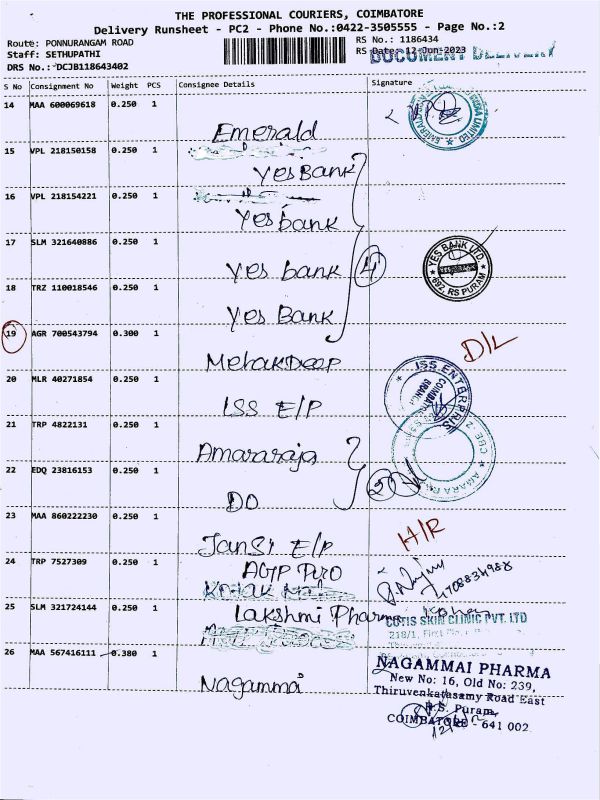 THE PROFESSIONAL COURIERS, COIMBATORE
Delivery Runsheet - PC2 - Phone No.:0422-3505555 - Page No.:2
Route: PONNURANGAM ROAD RS No.: 1186434
Staff: SETHUPATHI RS Date: 12-Jun-2023
DOCUMENT DELIVERY
DRS No.:'DCJB118643402
S No Consignment No Weight PCS Consignee Details Signature
14 MAA 600069618 0.250 1
Emerald
15 VPL 218150158 0.250 1
Yes Bank
16 VPL 218154221 0.250 1
Yes bank
17 SLM 321640886 0.250 1
Yes bank 4
YES BANK LTD.
692, RS PURAM
18 TRZ 110018546 0.250 1
Yes Bank
19 AGR 700543794 0.300 1
MehakDeep D/L
20 MLR 40271854 0.250 1
ISS E/P
ISS ENTERPRIS
COIMBATORE
BRANCH
21 TRP 4822131 0.250 1
Amararaja
22 EDQ 23816153 0.250 1
DO 2
23 MAA 860222230 0.250 1
Jansi E/P H/R
24 TRP 7527309 0.250 1
AGP Pro
25 SLM 321724144 0.250 1
Lakshmi Pharma
CUTIS SKIN CLINIC PVT. LTD
218/1, First
26 MAA 567416111 0.380 1
Nagammai
NAGAMMAI PHARMA
New No: 16, Old No: 239,
Thiruvenkatasamy Road East
R.S. Puram,
COIMBATORE - 641 002